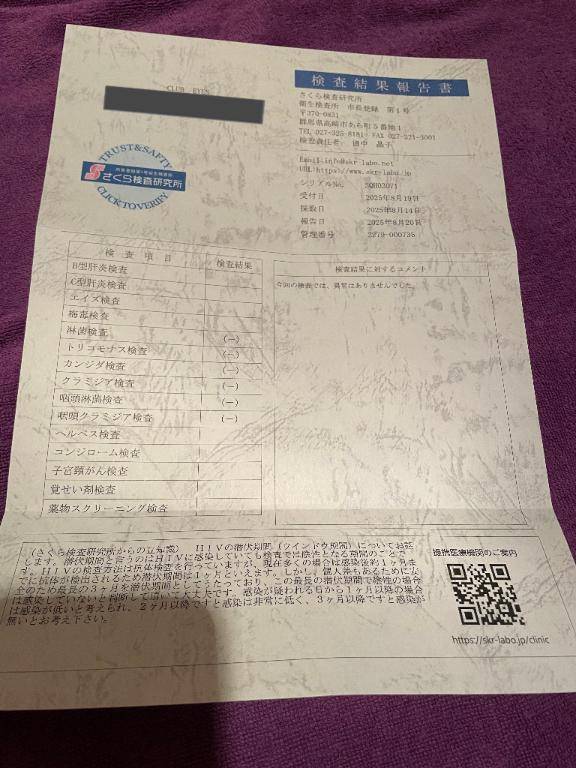 CLUB EYES
検査結果報告書
さくら検査研究所
衛生検査所 市長登録 第1号
〒370-0831
群馬県高崎市あら町5番地1
TEL 027-325-8181 FAX 027-321-3001
検査責任者 田中 晶子
Email:info@skr-labo.net
URL:https://www.skr-labo.jp
シリアルNo. SQH03071
受付日 2025年8月19日
採取日 2025年8月14日
報告日 2025年8月20日
管理番号 2279-000736
TRUST&SAFTY
さくら検査研究所
CLICK TO VERIFY
検査項目 検査結果
B型肝炎検査
C型肝炎検査
エイズ検査
梅毒検査
淋菌検査 (-)
トリコモナス検査 (-)
カンジダ検査 (-)
クラミジア検査 (-)
咽頭淋菌検査 (-)
咽頭クラミジア検査 (-)
ヘルペス検査
コンジローム検査
子宮頸がん検査
覚せい剤検査
薬物スクリーニング検査
検査結果に対するコメント
今回の検査では、異常はありませんでした。
(さくら検査研究所からの豆知識) HIVの潜伏期間(ウインドウ期間)についてお話
します。潜伏期間と言うのはHIVに感染していても検査では陰性となる期間のことで
す。HIVの検査方法は抗体検査を行っていますが、現在多くの場合は感染後約1ヶ月ま
でに抗体が検出されるため潜伏期間は1ヶ月といえます。しかし、個人差もあるために安
全のため最長の3ヶ月を潜伏期間としております。この最長の潜伏期間で陰性の場合
は感染していないと判断して頂いて大丈夫です。感染が疑われる日から1ヶ月以降の場合
は感染が低いと考えられ、2ヶ月以降ですと感染は非常に低く、3ヶ月以降ですと感染が
無いとお考え下さい。
提携医療機関のご案内
https://skr-labo.jp/clinic